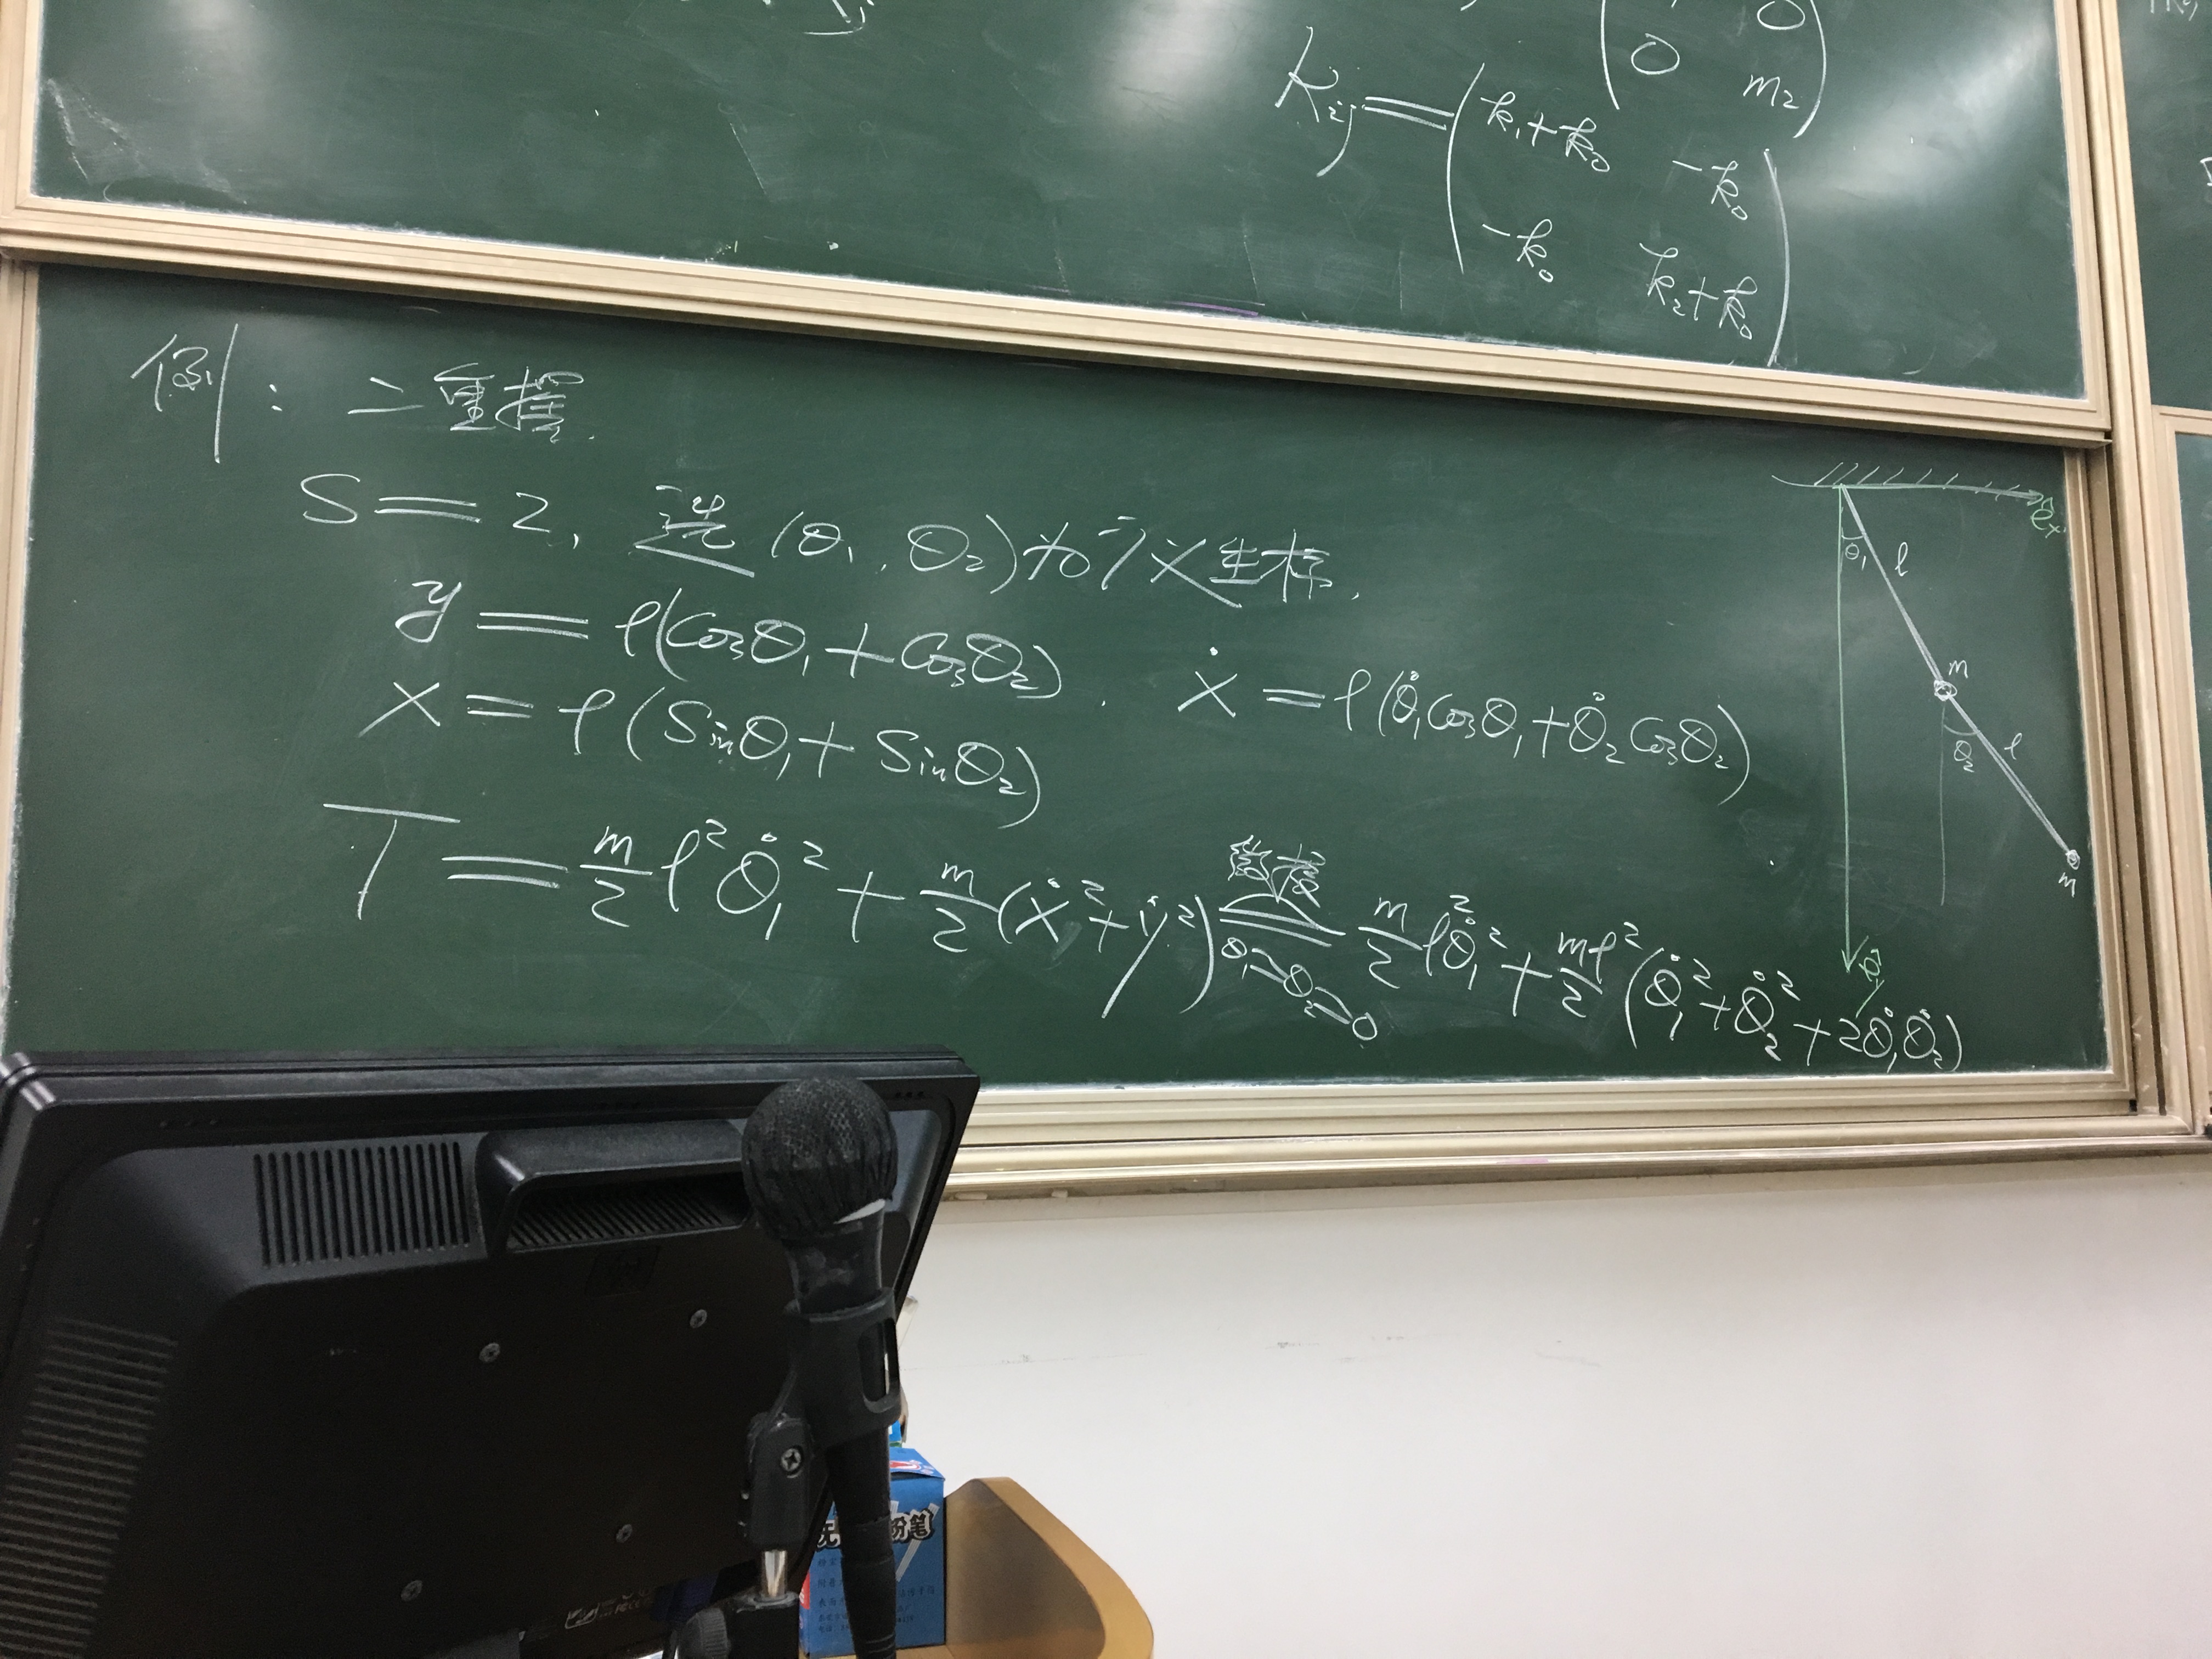 0
0 m₂
k_ij = ( k₁+k₀ -k₀
-k₀ k₂+k₀ )
例: 二重摆.
S = 2, 选 (θ₁, θ₂) 为广义坐标.
y = l(Cosθ₁ + Cosθ₂)
x = l(Sinθ₁ + Sinθ₂) . ẋ = l(θ̇₁Cosθ₁ + θ̇₂Cosθ₂)
T = m/2 l²θ̇₁² + m/2 (ẋ² + ẏ²) = m/2 l²θ̇₁² + ml²/2 (θ̇₁² + θ̇₂² + 2θ̇₁θ̇₂)
θ₁~θ₂~0
e_x
θ₁ l
m
θ₂ l
m
粉笔